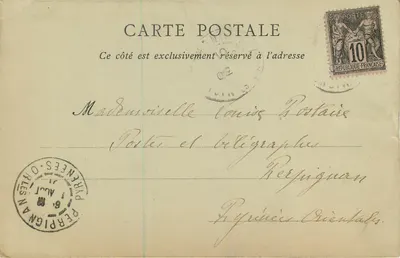 CARTE POSTALE
Ce côté est exclusivement réservé à l'adresse
10
REPUBLIQUE FRANCAISE
Mademoiselle Louise
Postes et télégraphes
Perpignan
Pyrénées Orientales
PERPIGNAN
PYRÉNÉES-ORLES
AOUT